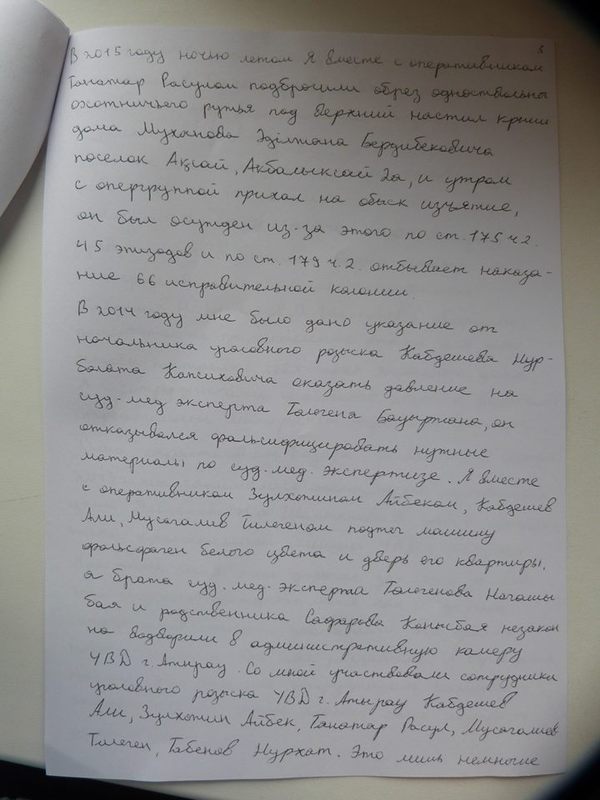 5
В 2015 году ночью летом я вместе с оперативником
Танатар Расулом подбросили обрез одноствольны
охотничьего ружья под верхний настил крыши
дома Муханова Эділжана Бердибековича
поселок Ақсай, Акбалыксай 2а, и утром
с опергруппой приехал на обыск изъятие,
он был осужден из-за этого по ст. 175 ч 2.
45 эпизодов и по ст. 179 ч. 2. отбывает наказа-
ние 66 исправительной колонии.
В 2014 году мне было дано указание от
начальника уголовного розыска Кабдешева Нур-
болата Капсиховича оказать давление на
суд-мед эксперта Толегена Бауыржана, он
отказывался фальсифицировать нужные
материалы по суд. мед. экспертизе. Я вместе
с оперативником Зулхожином Айбеком, Кабдешев
Али, Мусагалив Тилегеном поджег машину
фольсфаген белого цвета и дверь его квартиры,
а брата суд. мед. эксперта Толегенова Нагашы
бая и родственника Сафарова Каныбая незакон
но водворили в административную камеру
УВД г Атырау. Со мной участвовали сотрудники
уголовного розыска УВД г. Атырау Кабдешев
Али, Зулхожин Айбек, Танатар Расул, Мусагалиев
Тилеген, Табенов Нурхат. Это лишь немногие